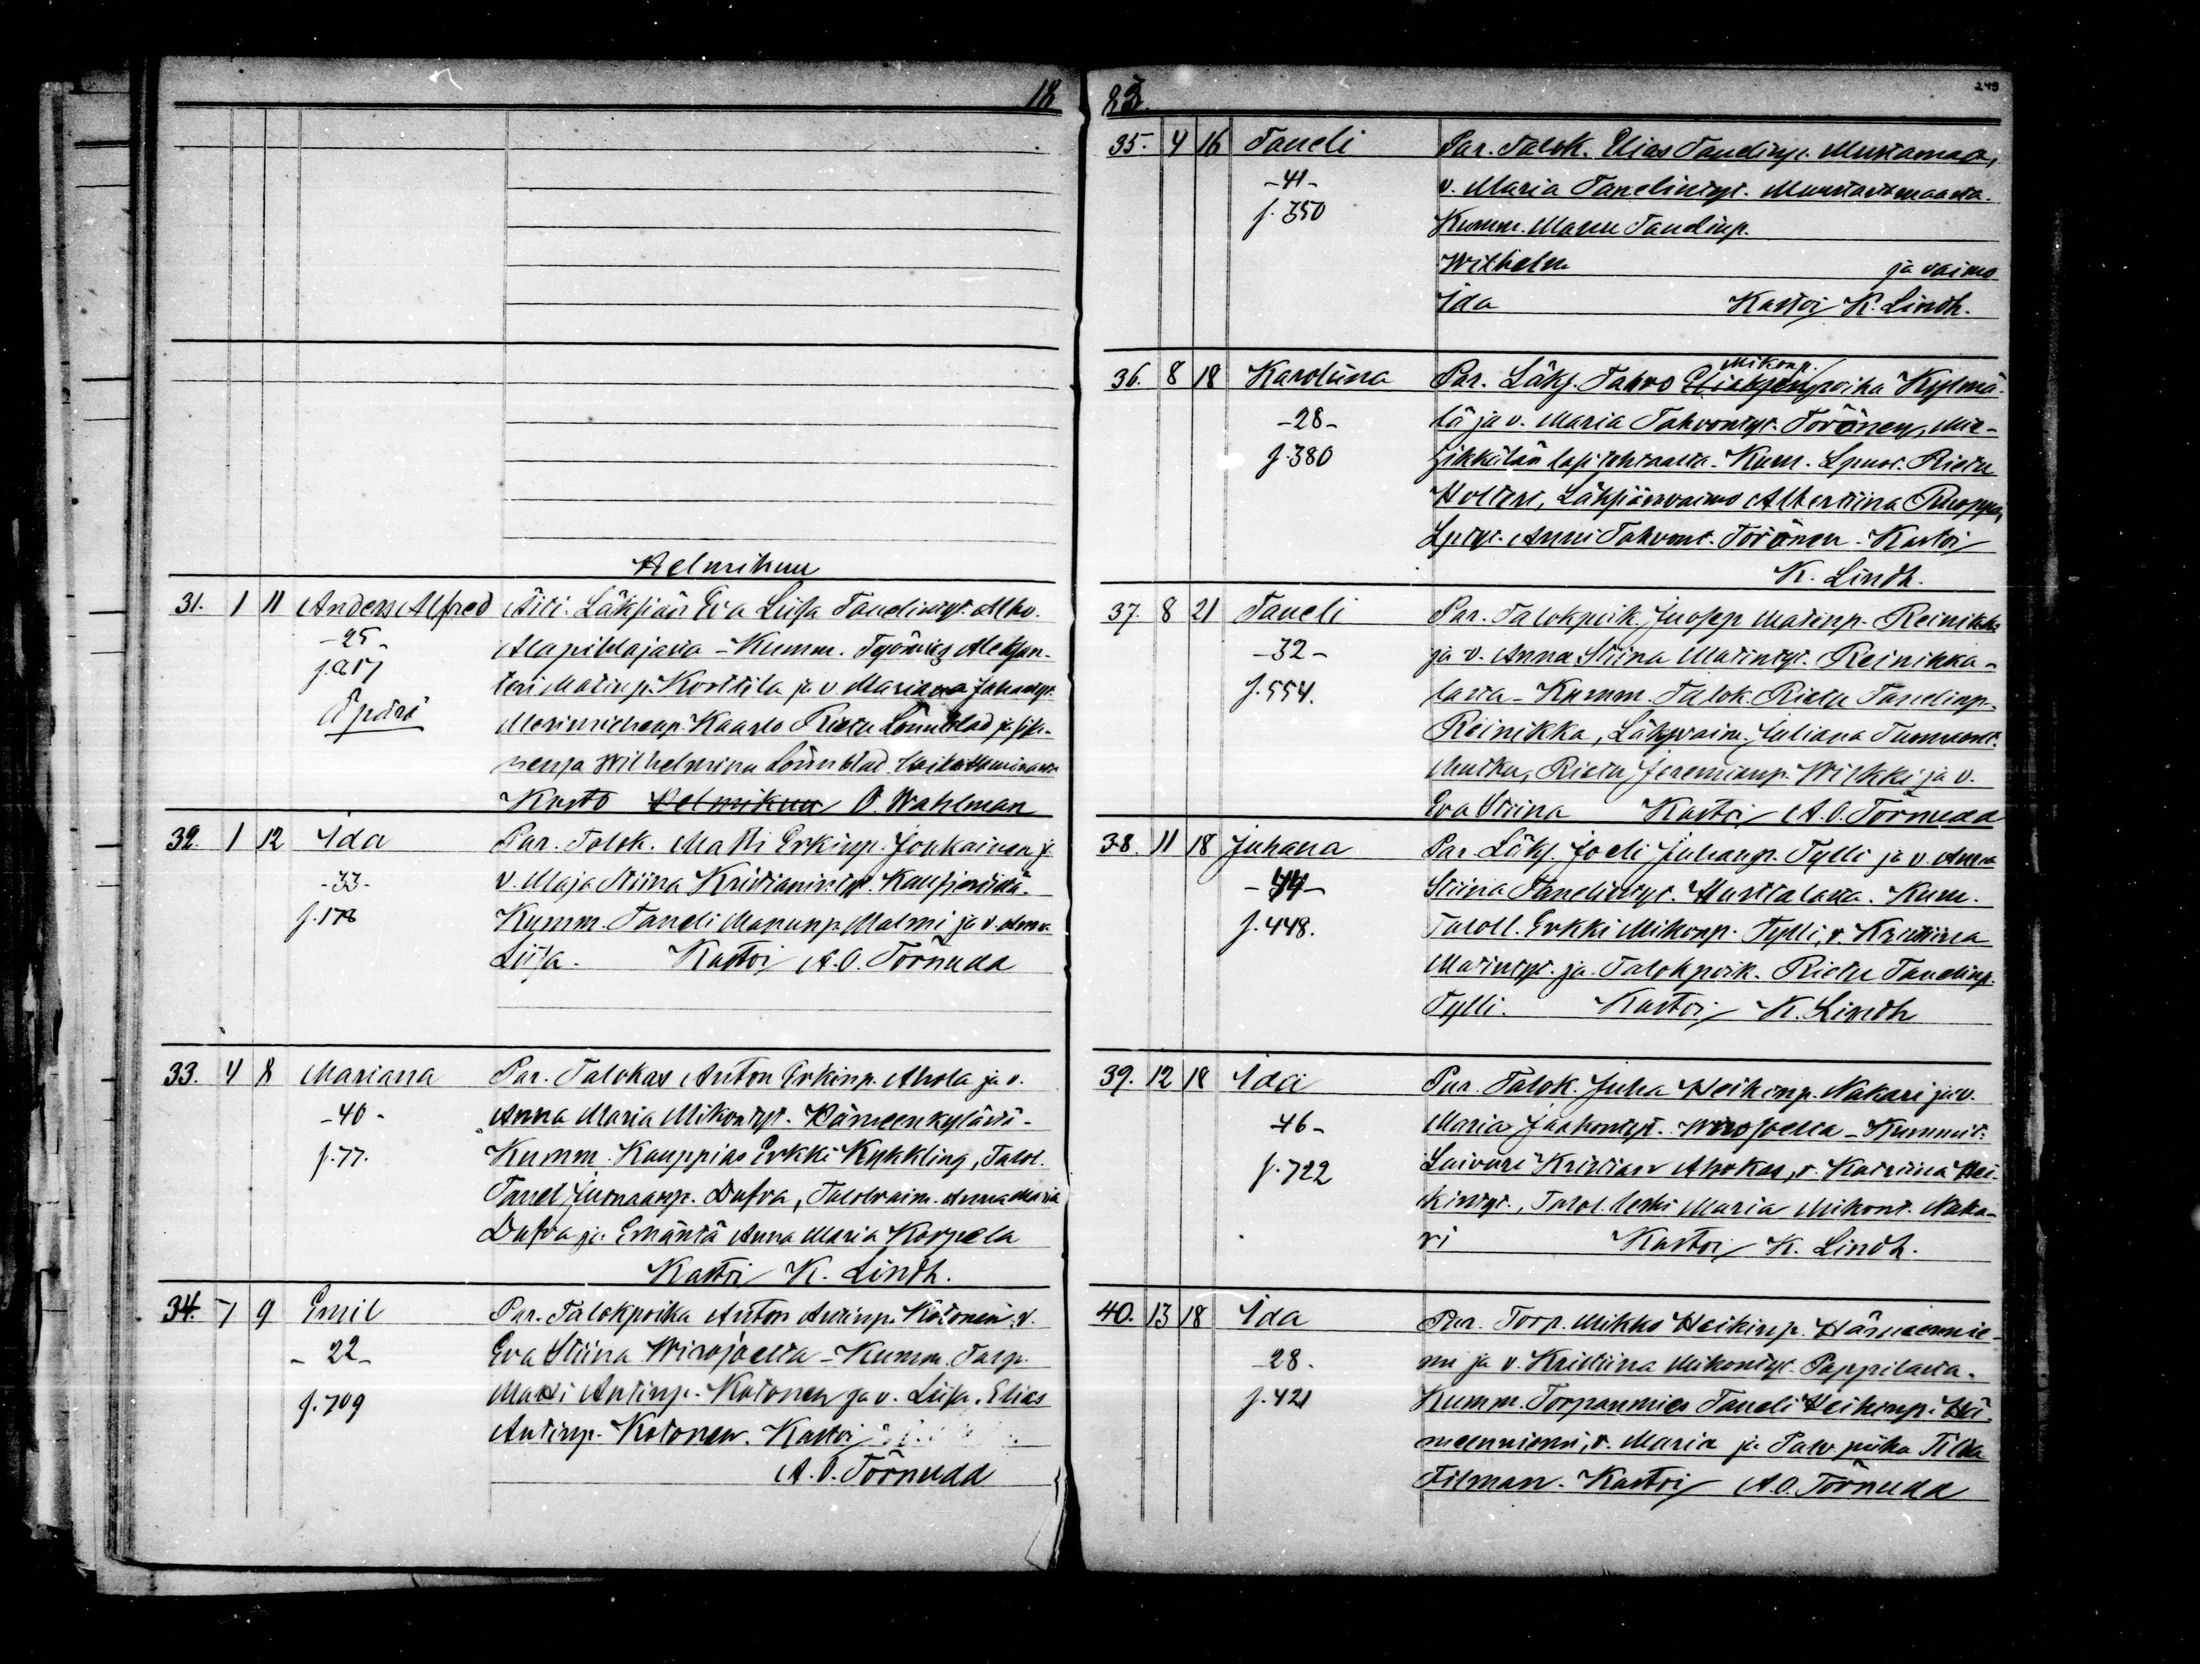 18
Helmikuu
31. 1 11 Anders Alfred Äiti. Läksiän Eva Liisa Tanelintyt. Alho.
-25- Alapihlajasta - Kumm. Työmies Aleksan-
f. 217 teri Matinp. Korttila ja v. Mariana Juhantyt.
Äpärä Merimiehenp. Kaarlo Rietu Lönnblad ja
Wilhelmina Lönnblad
Kasto Helmikuu O. Wahlman
32. 1 12 Ida Par. Talok. Matti Erkinp. Joukainen j.
-33- v. Maja Stiina Kristianintyt.
f. 178 Kumm. Taneli Manunp. Malmi ja v. Anna
Liisa. Kastoi A. O. Törnudd
33. 4 8 Mariana Par. Talokas Anton Erkinp. Ahola ja v.
-40- Anna Maria Mikontyt. Hämeenkylästä -
f. 77. Kumm. Kauppias Erkki Kykkling, Talol.
Tanel Juhnaanp. Dufva, Talolvaim. Anna Maria
Dufva ja Emäntä Anna Maria Korpela
Kastoi K. Lindh.
34. 7 9 Emil Par. Talokpoika Anton Antinp. Kotonen, v.
- 22 - Eva Stiina Wirojoelta - Kumm. Torp.
f. 709 Matti Antinp. Kotonen ja v. Liisa, Elias
Antinp. Kotonen. Kastoi
A. O. Törnudd
83. 249
35. 4 16 Taneli Par. Talok. Elias Tanelinp. Mustamaa,
-41- v. Maria Tanelintyt. Mustaltamaalta.
f. 350 Kumm. Manu Tanelinp.
Wilhelm ja vaimo
Ida Kastoi K. Lindh.
Mikonp.
36. 8 18 Karoliina Par. Läksj. Tahvo poika Kylmä-
-28- lä ja v. Maria Tahvontyt. Törönen, Mie-
f. 380 hikkälän lasitehtaalta. Kum. Rietu
Holteri, Läksiänvaimo Albertiina Ruoppa,
Anni Tahvont. Törönen - Kastoi
K. Lindh.
37. 8 21 Taneli Par. Talokpoik. Juosep Matinp. Reinikka
-32- ja v. Anna Stiina Matintyt. Reinikka-
f. 554. lasta - Kumm. Talok. Rietu Tanelinp.
Reinikka, Läksvaim. Juliana Tuomaant.
Mutka, Rietu Jeremianp. Wilkki ja v.
Eva Stiina Kastoi A. O. Törnudd
38. 11 18 Juhana Par. Läksj. Joeli Juhanp. Tylli ja v. Anna
-44- Stiina Tanelintyt. Hurttalasta. Kum.
f. 448. Taloll. Erkki Mikonp. Tylli, v. Kristiina
Matintyt. ja Talokpoik. Rietu Tanelinp.
Tylli. Kastoi K. Lindh
39. 12 18 Ida Par. Talok. Juha Heikinp. Nakari ja v.
-46- Maria Jaakontyt. Wirojoelta - Kummit:
f. 722 Laivuri Kristian Ahokas, v. Katriina Hei-
kintyt., Talol. leski Maria Mikont. Naka-
ri Kastoi K. Lindh.
40. 13 18 Ida Par. Torp. Mikko Heikinp. Hämeennie-
-28- mi ja v. Kristiina Mikontyt. Pappilasta.
f. 421 Kumm. Torpanmies Taneli Heikinp. Hä-
meenniemi, v. Maria ja Palv. piika Tilda
Filman. Kastoi A. O. Törnudd